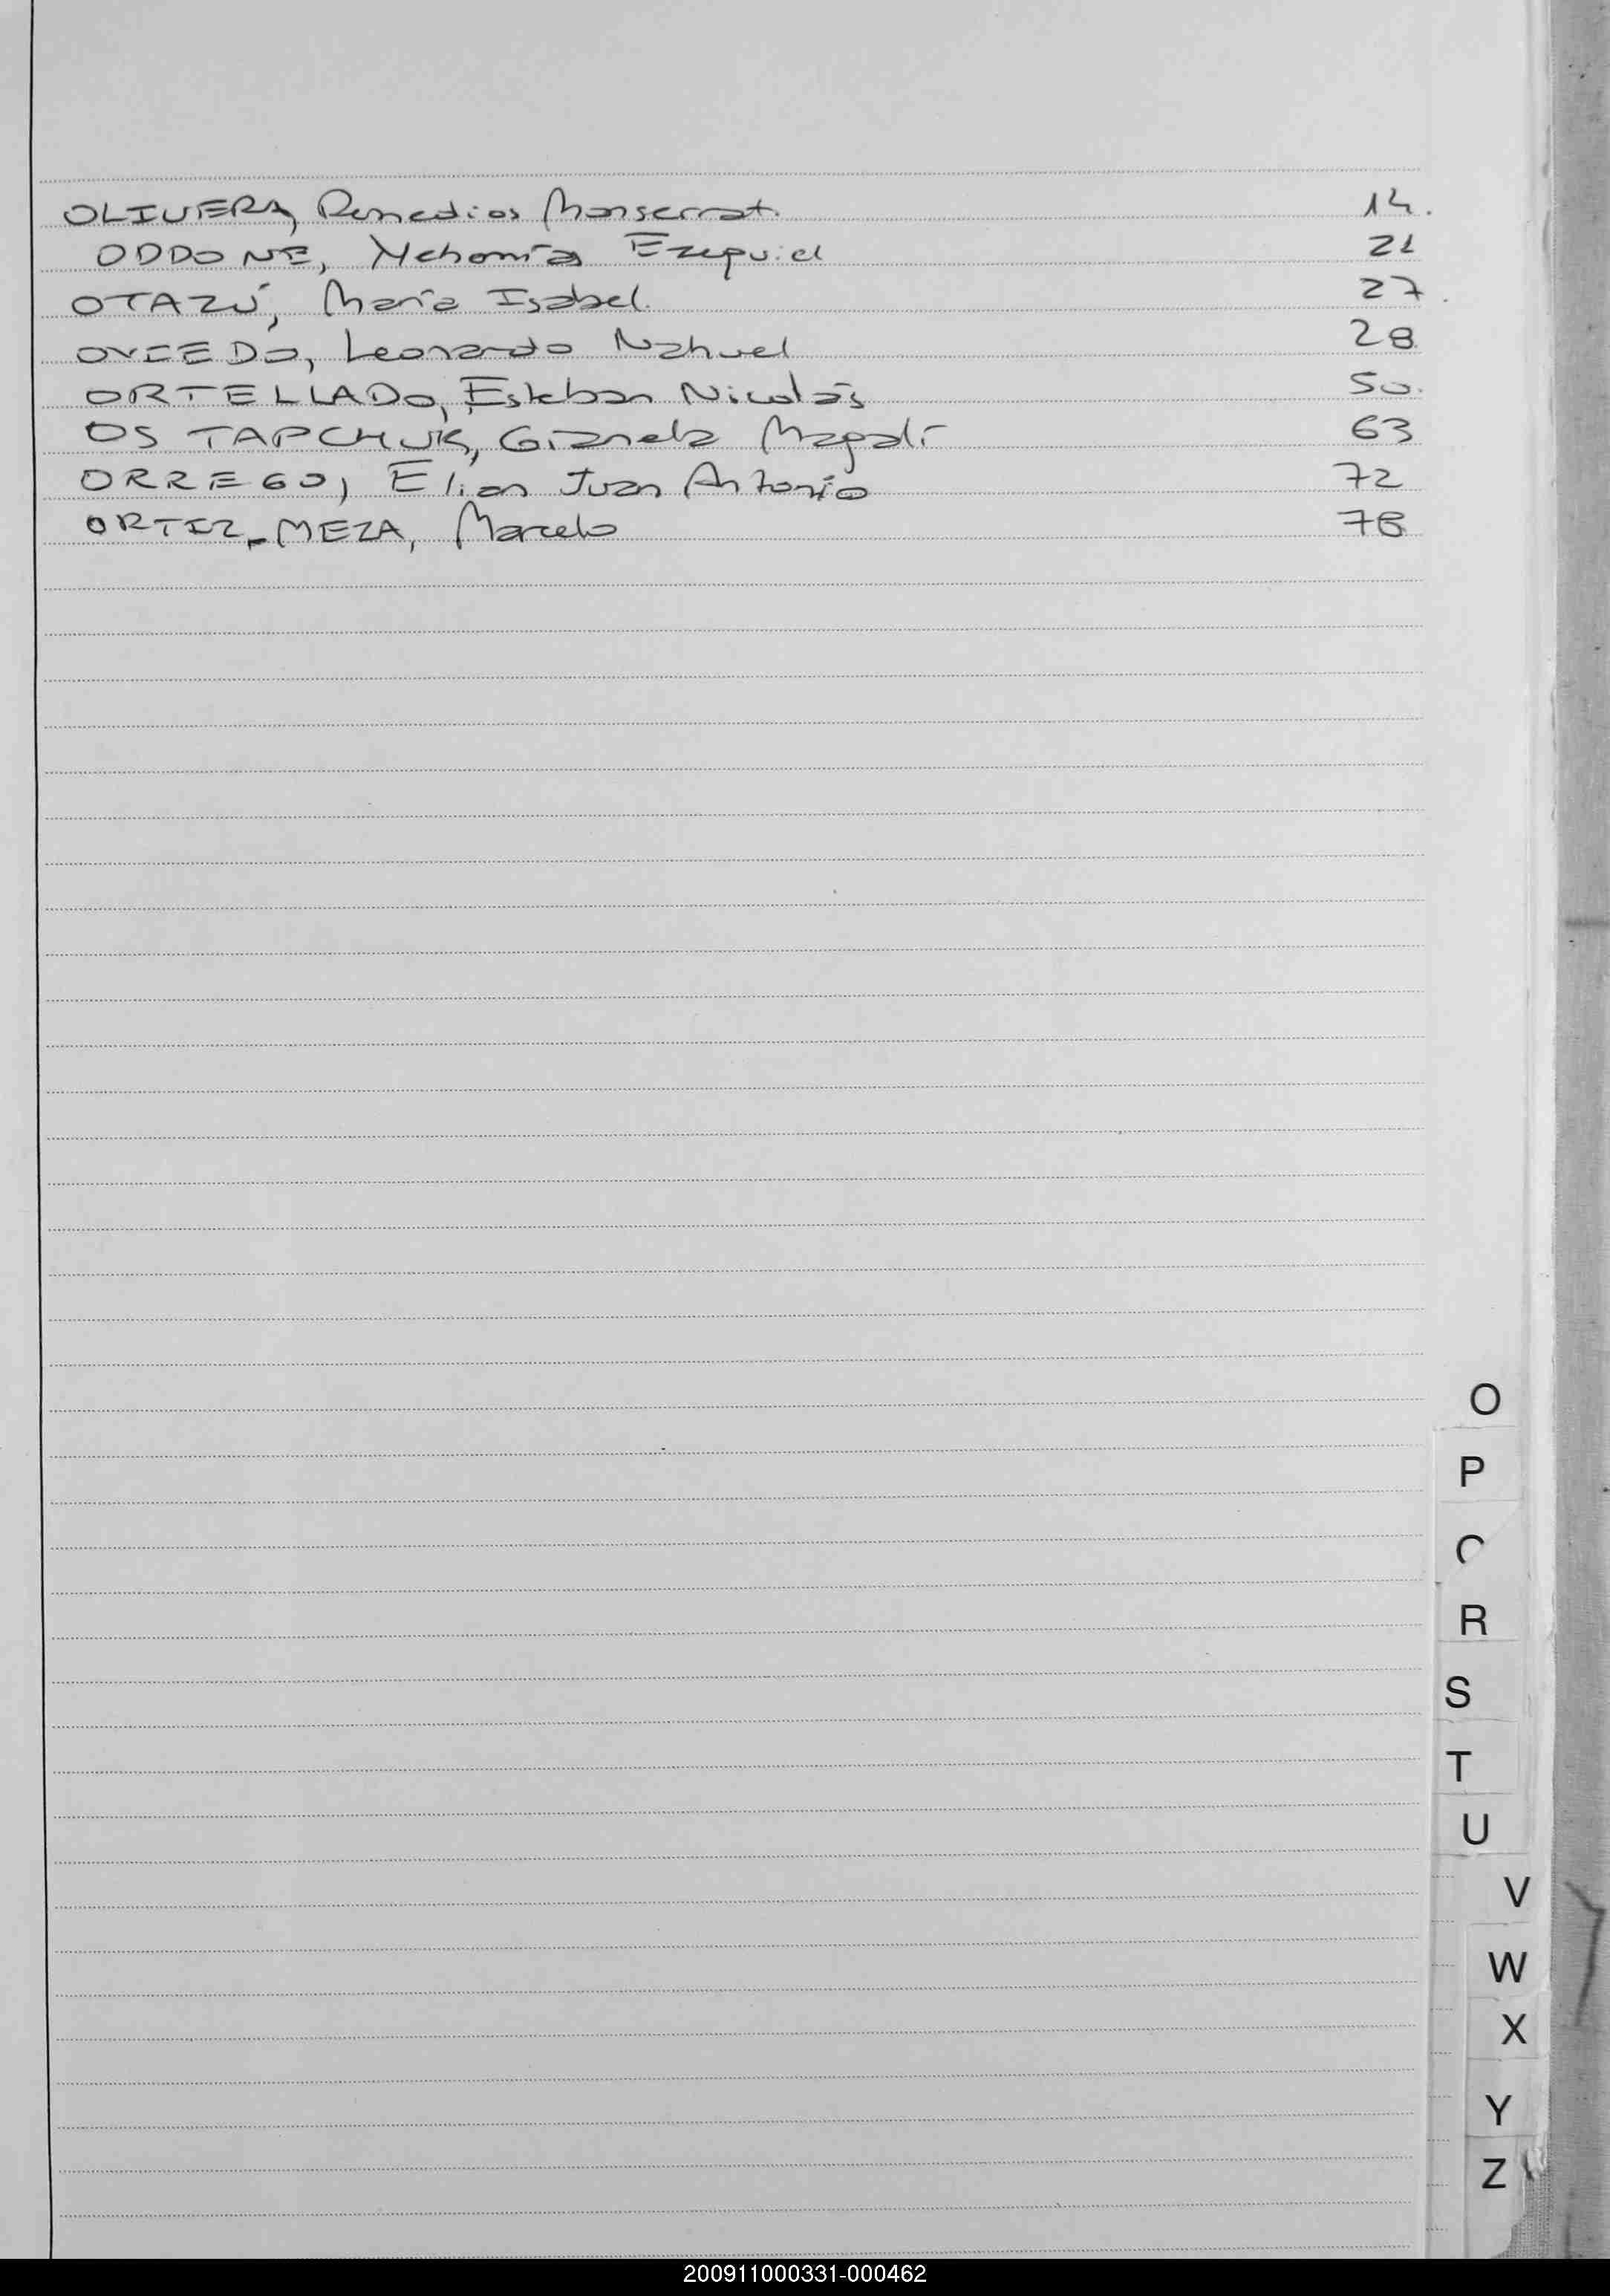 OLIVERA, Remedios Monserrat. 14.
ODDONE, Nehomía Ezequiel 21
OTAZÚ, María Isabel. 27.
OVIEDO, Leonardo Nahuel 28.
ORTELLADO, Esteban Nicolás 50.
OSTAPCHUK, Gianela Magalí 63
ORREGO, Elian Juan Antonio 72
ORTIZ-MEZA, Marcelo 78
O
P
R
S
T
U
V
W
X
Y
Z
200911000331-000462